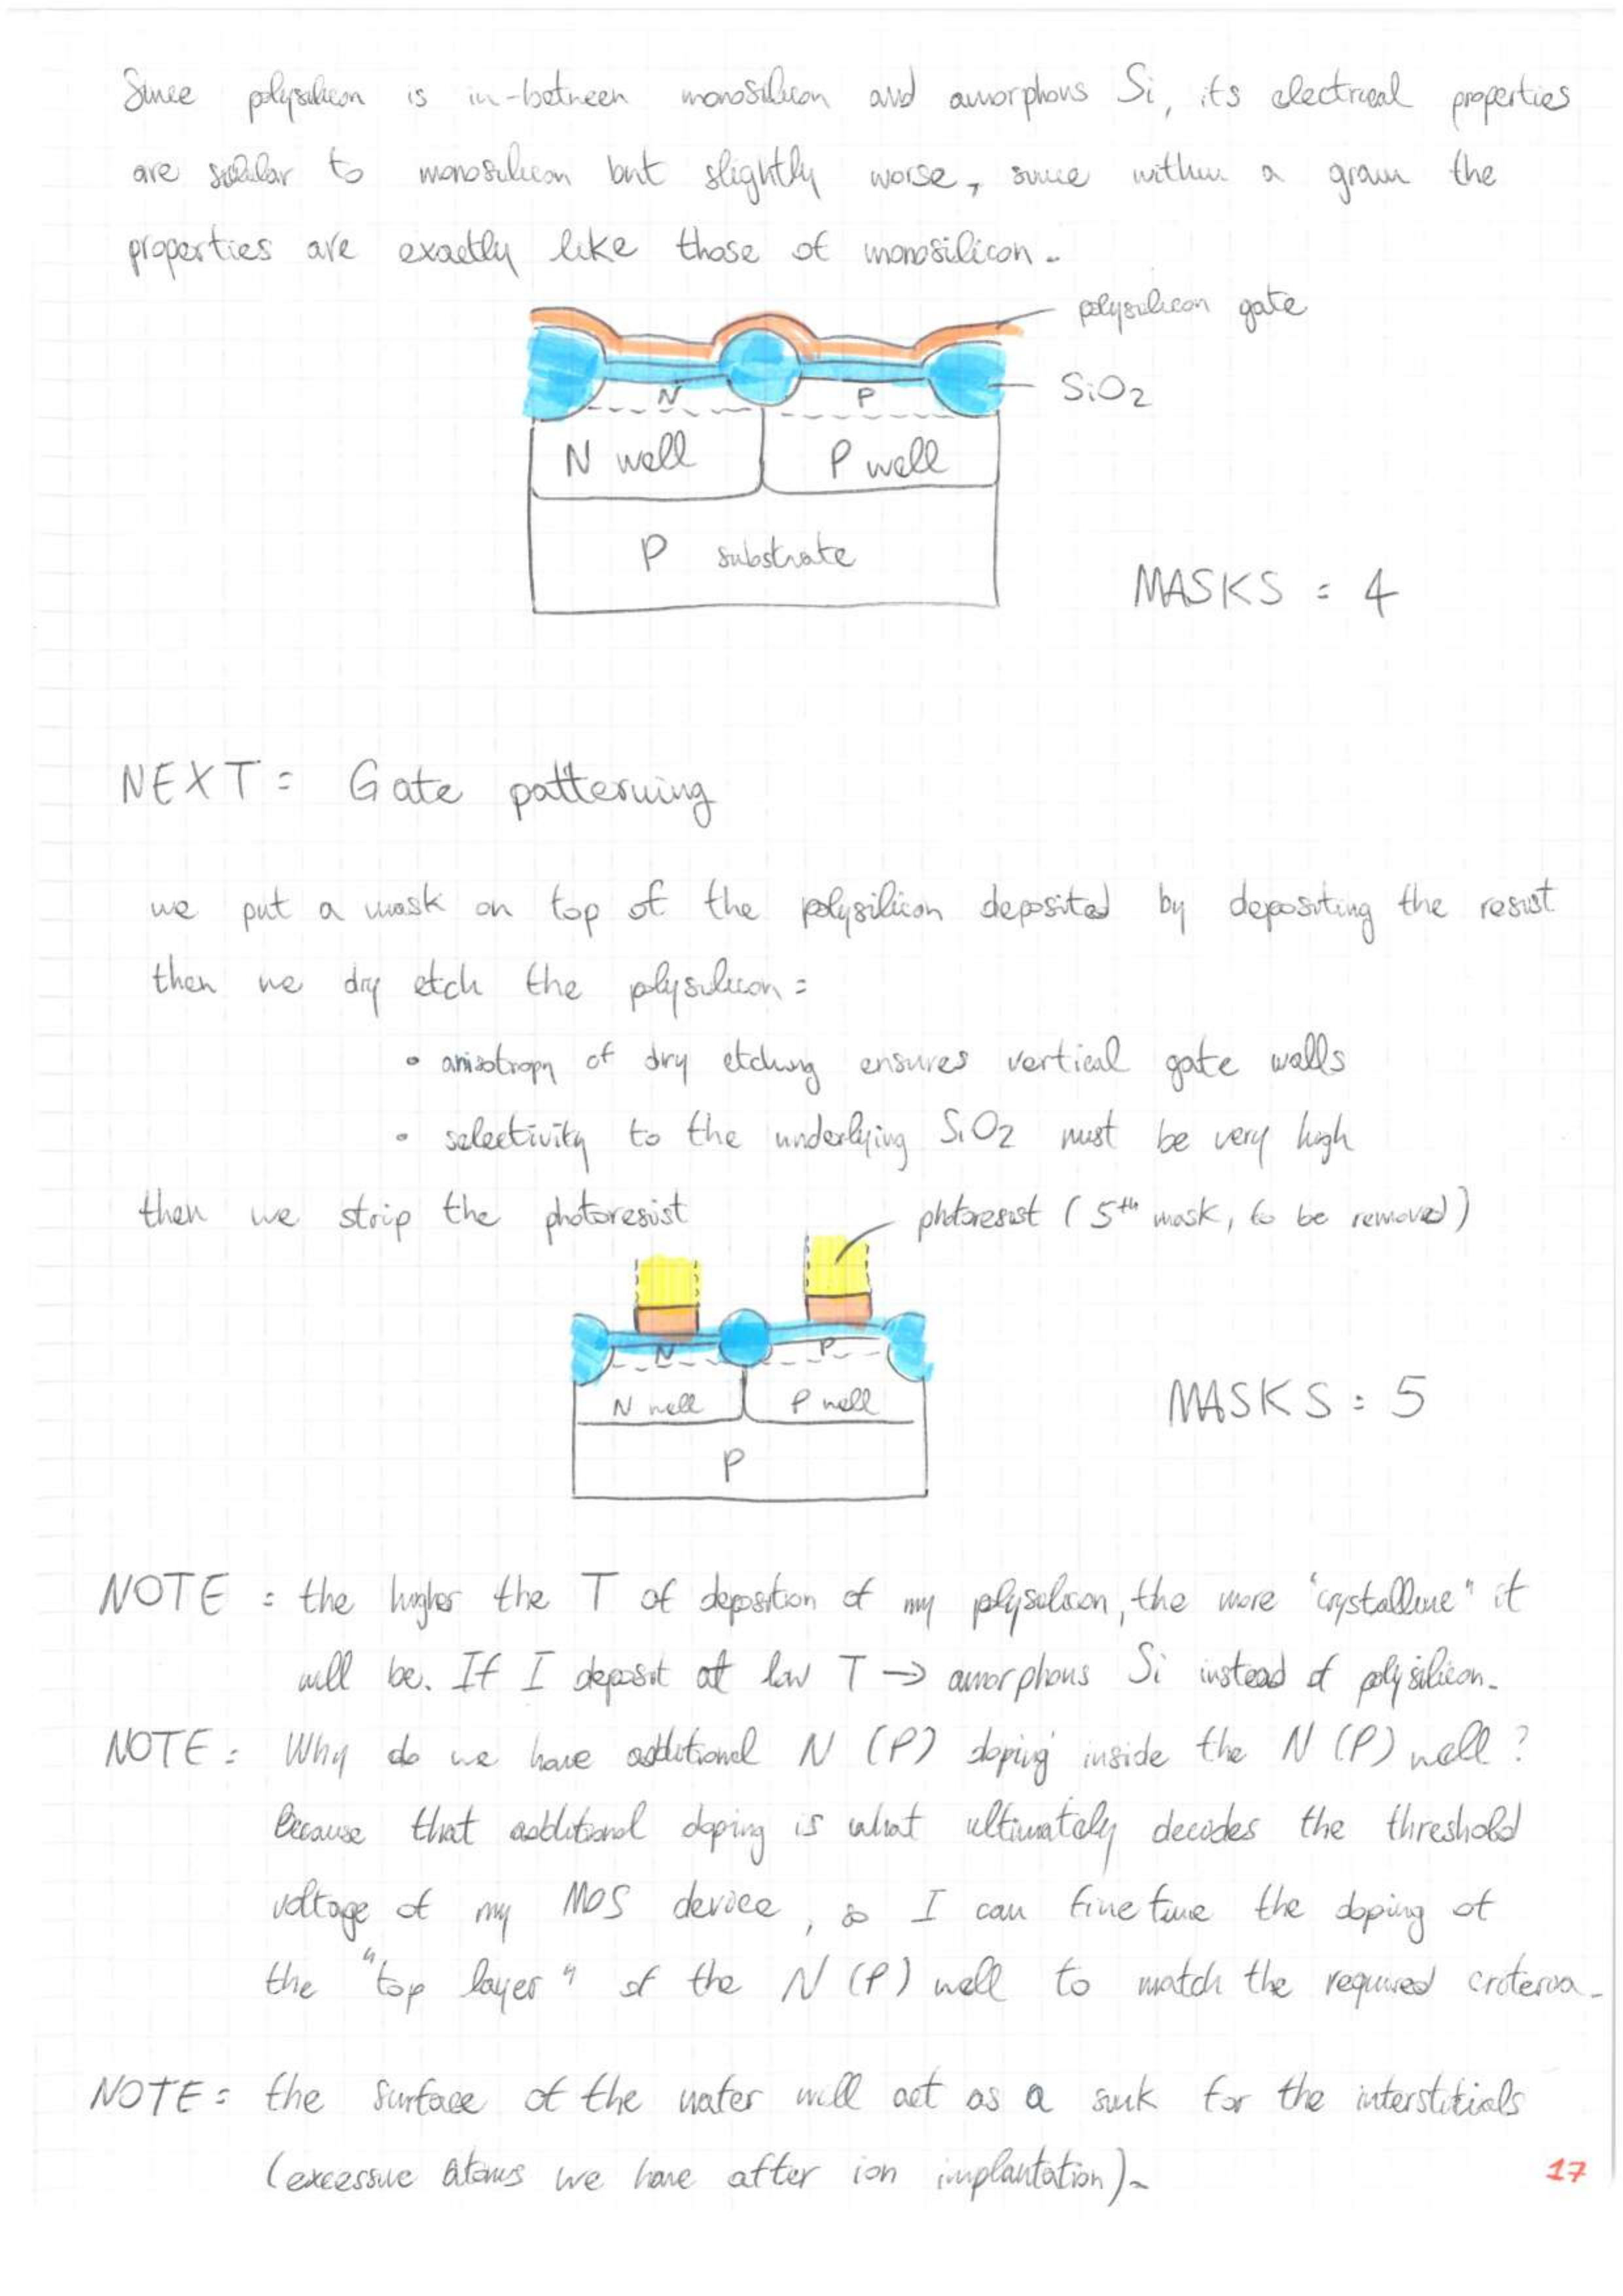 Since polysilicon is in-between monosilicon and amorphous Si, its electrical properties
are similar to monosilicon but slightly worse, since within a grain the
properties are exactly like those of monosilicon.
polysilicon gate
SiO2
N P
N well P well
P substrate
MASKS = 4
NEXT = Gate patterning
we put a mask on top of the polysilicon deposited by depositing the resist
then we dry etch the polysilicon =
• anisotropy of dry etching ensures vertical gate walls
• selectivity to the underlying SiO2 must be very high
then we strip the photoresist
photoresist (5th mask, to be removed)
N P
N well P well
P
MASKS = 5
NOTE = the higher the T of deposition of my polysilicon, the more "crystalline" it
will be. If I deposit at low T → amorphous Si instead of polysilicon.
NOTE = Why do we have additional N (P) doping inside the N (P) well?
Because that additional doping is what ultimately decides the threshold
voltage of my MOS device, so I can fine tune the doping of
the "top layer" of the N (P) well to match the required criteria.
NOTE = the surface of the water will act as a sink for the interstitials
(excessive atoms we have after ion implantation).
17